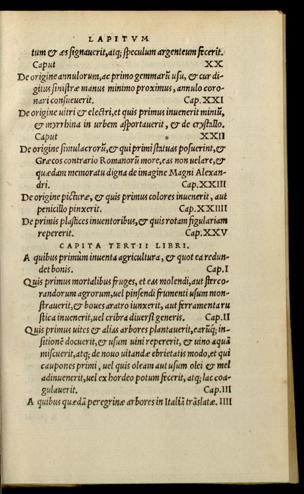 LAPITVM
tum & æs signauerit, atq; speculum argenteum fecerit.
Caput XX
De origine annulorum, ac primo gemmarū usu, & cur di
gitus sinistræ manus minimo proximus, annulo coro-
nari consueuerit. Cap.XXI
De origine uitri & electri, et quis primus inuenerit miniū,
& myrrhina in urbem asportauerit, & de crystallo.
Caput XXII
De origine simulacrorū, & qui primi statuas posuerint, &
Græcos contrario Romanorū more, eas non uelare, &
quædam memoratu digna de imagine Magni Alexan-
dri. Cap.XXIII
De origine picturæ, & quis primus colores inuenerit, aut
penicillo pinxerit. Cap.XXIIII
De primis plastices inuentoribus, & quis rotam figulariam
repererit. Cap.XXV
CAPITA TERTII LIBRI.
A quibus primùm inuenta agricultura, & quot ea redun
det bonis. Cap.I
Quis primus mortalibus fruges, et eas molendi, aut sterco-
randorum agrorum, uel pinsendi frumenti usum mon-
strauerit, & boues aratro iunxerit, aut ferramenta ru
stica inuenerit, uel cribra diuersi generis. Cap.II
Quis primus uites & alias arbores plantauerit, earūq; in-
sitionē docuerit, & usum uini repererit, & uino aquā
miscuerit, atq; de nouo uitandæ ebrietatis modo, et qui
caupones primi, uel quis oleam aut usum olei & mel
adinuenerit, uel ex hordeo potum fecerit, atq; lac coa-
gulauerit. Cap.III
A quibus quædā peregrinæ arbores in Italiā trāslatæ. IIII